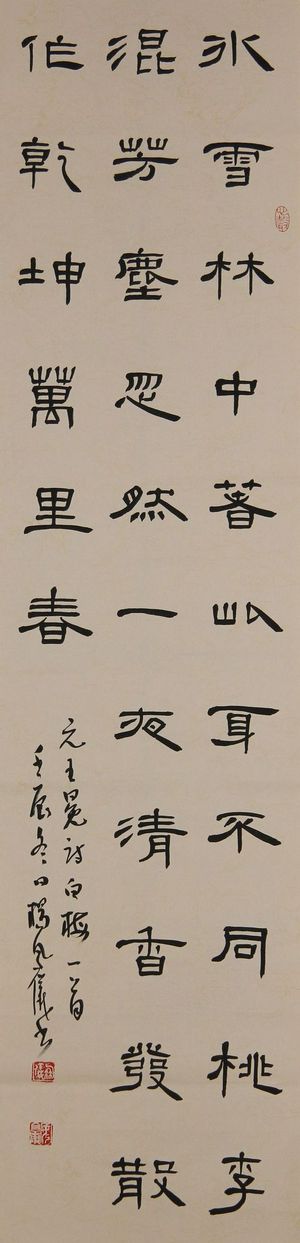 冰雪林中著此身不同桃李
混芳塵忽然一夜清香發散
作乾坤萬里春
元王冕詩白梅一首
壬辰冬日楊儀書